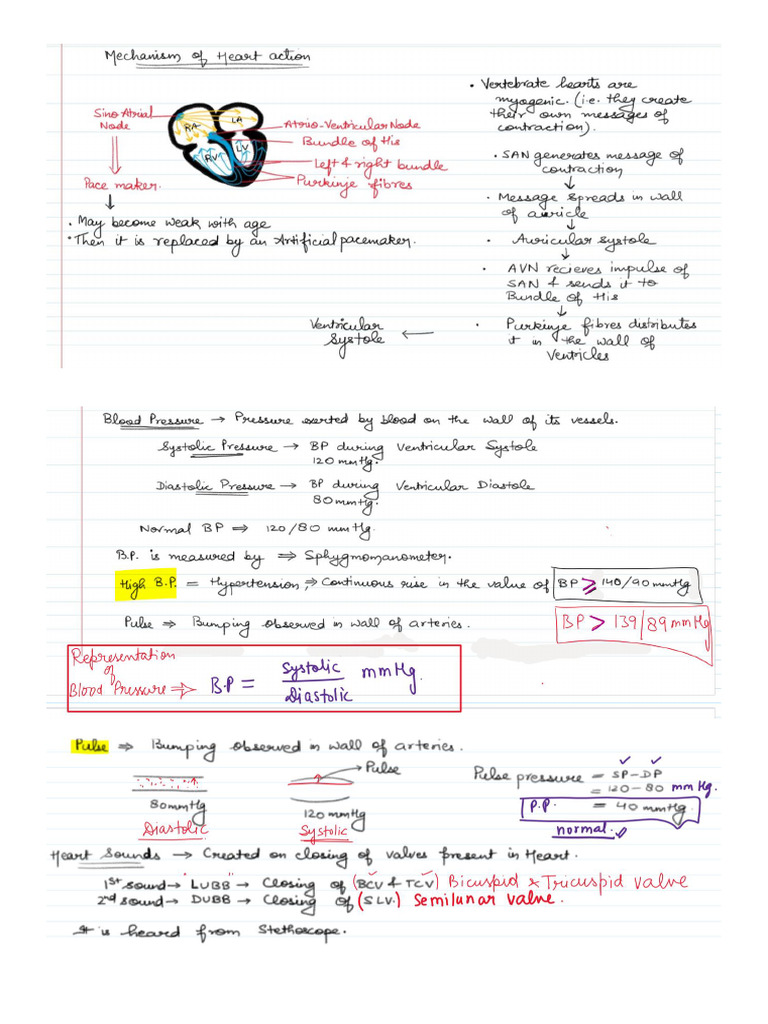 Mechanism of Heart action
Sino Atrial
Node
Pace maker.
RA
LA
RV
LV
Atrio-Ventricular Node
Bundle of His
Left & right bundle
Purkinje fibres
• May become weak with age
• Then it is replaced by an Artificial pacemaker.
• Vertebrate hearts are
myogenic. (i.e. they create
their own messages of
contraction).
• SAN generates message of
contraction
↓
• Message spreads in wall
of auricle
↓
• Auricular systole
↓
• AVN recieves impulse of
SAN & sends it to
Bundle of His
↓
• Purkinje fibres distributes
it in the wall of
Ventricles
Ventricular
Systole ←
Blood Pressure → Pressure exerted by blood on the wall of its vessels.
Systolic Pressure → BP during Ventricular Systole
120 mmHg.
Diastolic Pressure → BP during Ventricular Diastole
80 mmHg.
Normal BP ⇒ 120/80 mmHg.
B.P. is measured by ⇒ Sphygmomanometer.
High B.P. = Hypertension, ⇒ Continuous rise in the value of BP ≥ 140/90 mmHg
Pulse ⇒ Bumping observed in wall of arteries. BP > 139/89 mmHg
Representation
of
Blood Pressure ⇒ B.P = Systolic / Diastolic mmHg.
Pulse ⇒ Bumping observed in wall of arteries.
→ Pulse
80 mmHg
Diastolic
120 mmHg
Systolic
Pulse pressure = SP - DP
= 120 - 80 mmHg.
P.P. = 40 mmHg.
normal.
Heart Sounds → Created on closing of valves present in Heart.
1st sound → LUBB → Closing of (BCV & TCV) Bicuspid & Tricuspid valve
2nd sound → DUBB → Closing of (SLV.) Semilunar valve.
It is heard from Stethoscope.